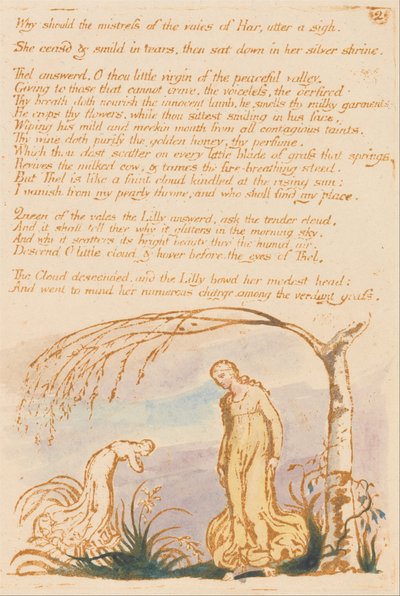 2
Why should the mistress of the vales of Har, utter a sigh.
She ceasd & smild in tears, then sat down in her silver shrine.
Thel answerd, O thou little virgin of the peaceful valley.
Giving to those that cannot crave, the voiceless, the oertired.
Thy breath doth nourish the innocent lamb, he smells thy milky garments,
He crops thy flowers, while thou sittest smiling in his face,
Wiping his mild and meekin mouth from all contagious taints.
Thy wine doth purify the golden honey, thy perfume,
Which thou dost scatter on every little blade of grass that springs
Revives the milked cow, & tames the fire-breathing steed.
But Thel is like a faint cloud kindled at the rising sun:
I vanish from my pearly throne, and who shall find my place.
Queen of the vales the Lilly answerd, ask the tender cloud,
And it shall tell thee why it glitters in the morning sky,
And why it scatters its bright beauty thro the humid air.
Descend O little cloud & hover before the eyes of Thel.
The Cloud descended, and the Lilly bowd her modest head:
And went to mind her numerous charge among the verdant grass.